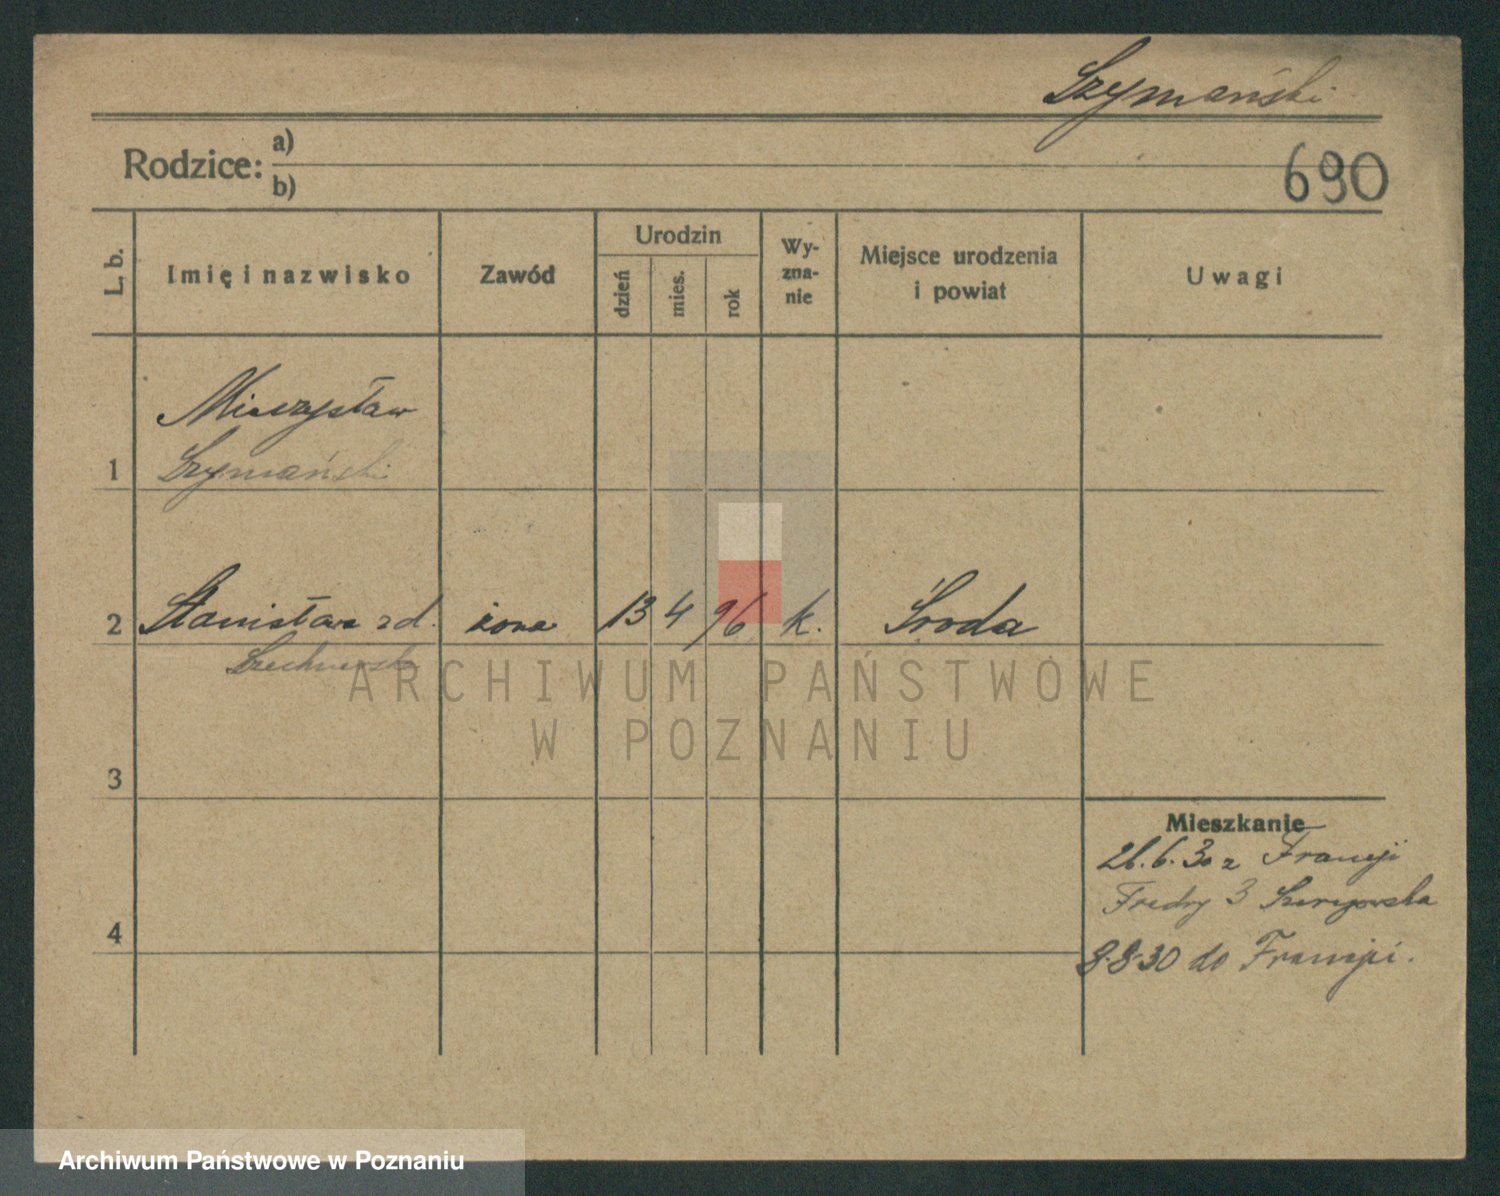 Szymański
Rodzice: a)
b)
690
L. b.
Imię i nazwisko
Zawód
Urodzin
dzień
mies.
rok
Wy-
zna-
nie
Miejsce urodzenia
i powiat
Uwagi
Mieczysław
1 Szymański
2 Stanisława zd. żona 13 4 96 k. Środa
3
Mieszkanie
26.6.30 z Francji
Fredry 3
4
8.8.30 do Francji.
ARCHIWUM PAŃSTWOWE
W POZNANIU
Archiwum Państwowe w Poznaniu